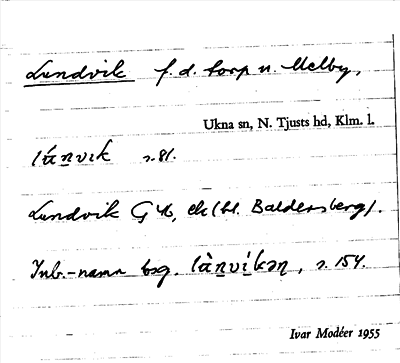 Lundvik f. d. torp u. Melby,
Ukna sn, N. Tjusts hd, Klm. l.
s. 81.
Lundvik G 46, ek (bl. Baldersberg).
Inb.-namn bsg. s. 154.
Ivar Modéer 1955